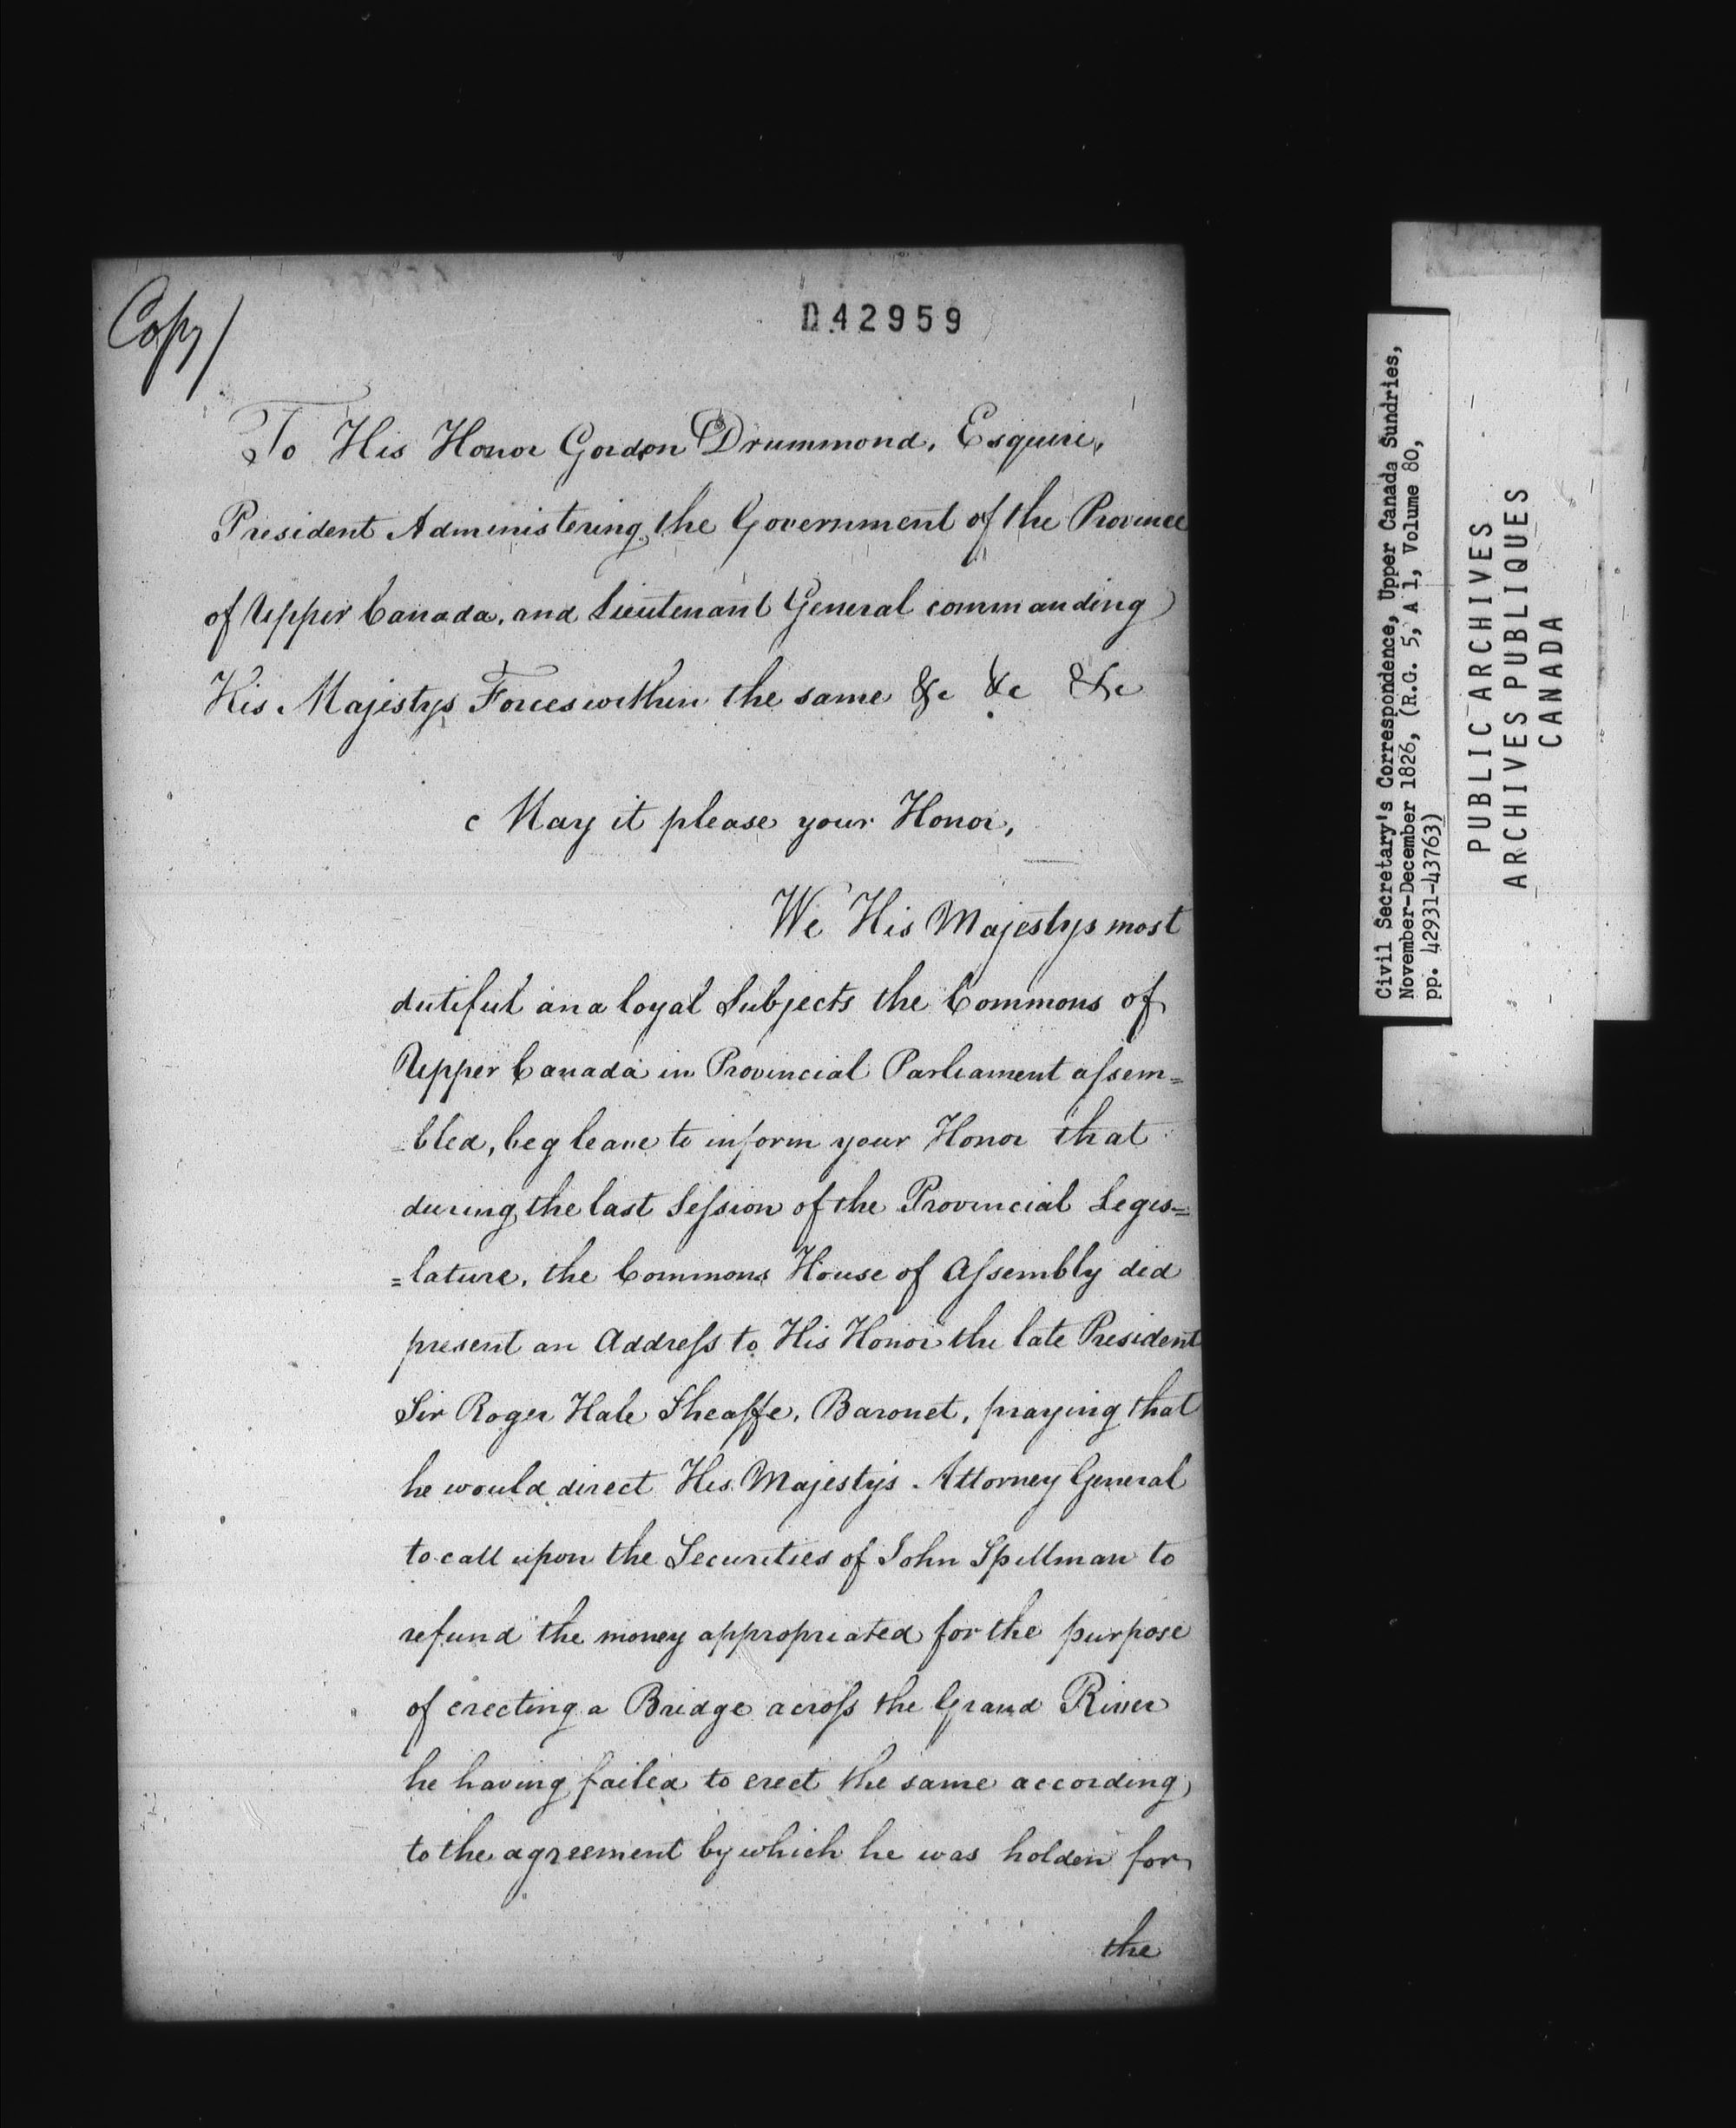 Copy/
D42959
To His Honor Gordon Drummond, Esquire,
President Administering the Government of the Province
of Upper Canada, and Lieutenant General commanding
His Majestys Forces within the same &c &c &c
May it please your Honor,
We His Majestys most
dutiful and loyal Subjects the Commons of
Upper Canada in Provincial Parliament assem=
=bled, beg leave to inform your Honor that
during the last Session of the Provincial Legis=
=lature, the Commons House of Assembly did
present an Address to His Honor the late President
Sir Roger Hale Sheaffe, Baronet, praying that
he would direct His Majesty's Attorney General
to call upon the Securities of John Spillman to
refund the money appropriated for the purpose
of erecting a Bridge across the Grand River
he having failed to erect the same according
to the agreement by which he was holden for
the
Civil Secretary's Correspondence, Upper Canada Sundries,
November-December 1826, (R.G. 5, A 1, Volume 80,
pp. 42931-43763)
PUBLIC ARCHIVES
ARCHIVES PUBLIQUES
CANADA